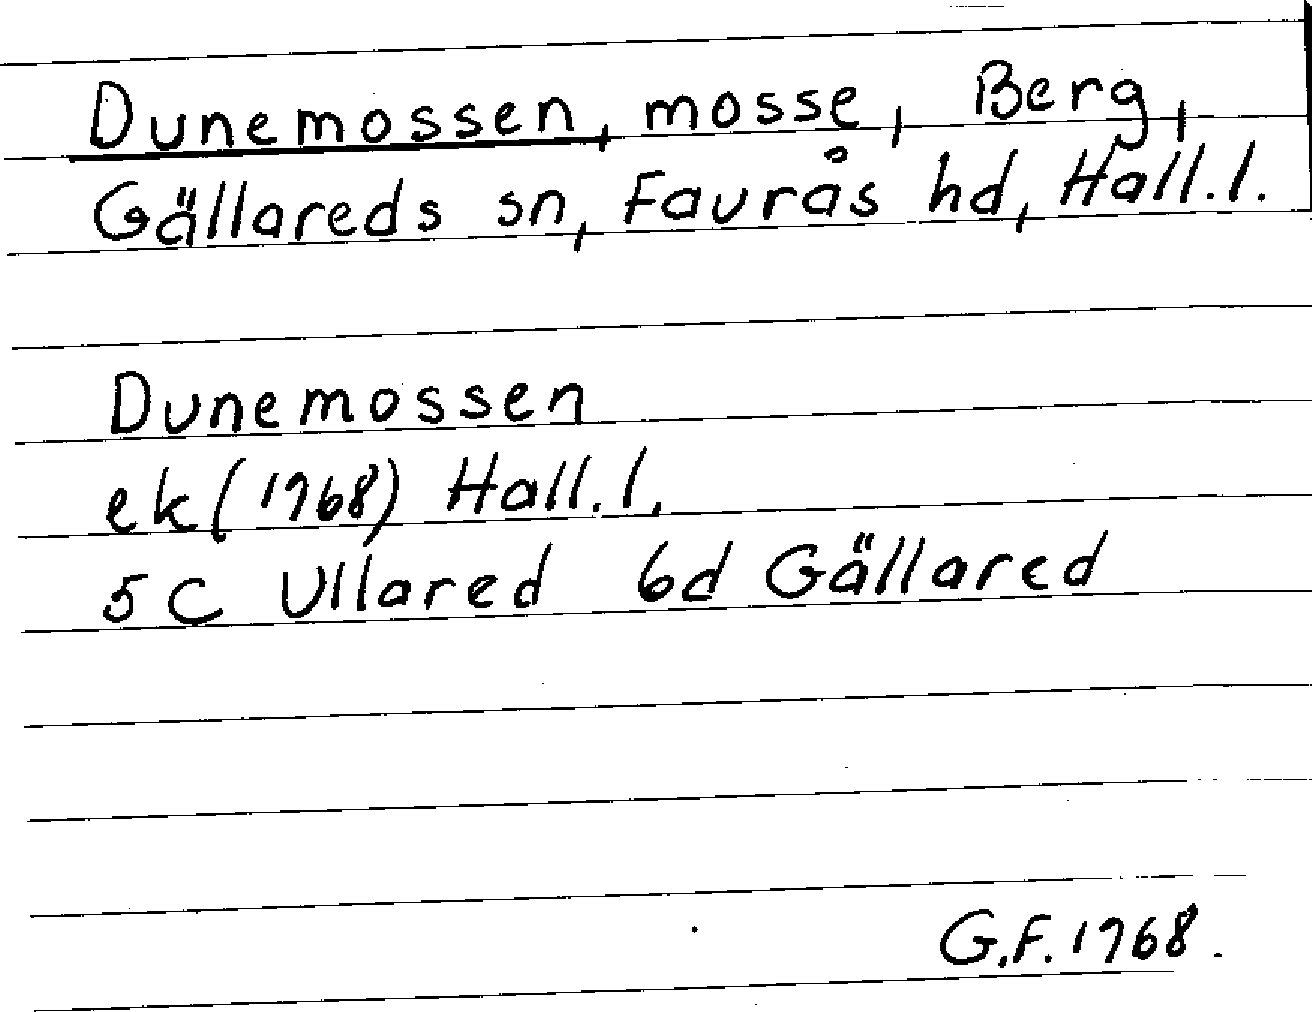 Dunemossen, mosse, Berg,
Gällareds sn, Faurås hd, Hall.l.
Dunemossen
ek (1968) Hall.l.
5C Ullared 6d Gällared
G.F. 1968.